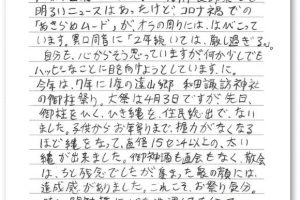 明るいニュースはあったけど、コロナ禍での
「あきらめムード」が、オラの周りには、はびこって
います。異口同音に「2年続いては、厳し過ぎる。」
自分も、心からそう思っていますが何か少しでも
ハッピーなことに目を向けようとしています。に。
今年は、7年に1度の遠山郷 和田諏訪神社
の御柱祭り。大祭は4月3日ですが先日、
御柱をひく、ひき縄を、住民総出で、ない
ました。子供からお年寄りまで、握力がなくなる
ほど縄をなって、直径15センチ以上の、太い
縄が出来ました。御神酒も直会もなく、散会
は、ちと残念でしたが集まった皆の顔には、
達成感がありました。これこそ、お祭り気分。